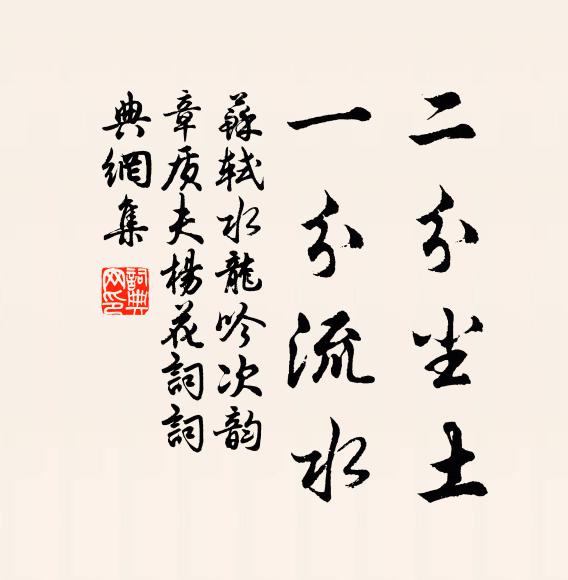 二分尘土
一分流水
蘇軾水龍吟次韵
章质夫楊花詞詞
典網集
詞典
网印